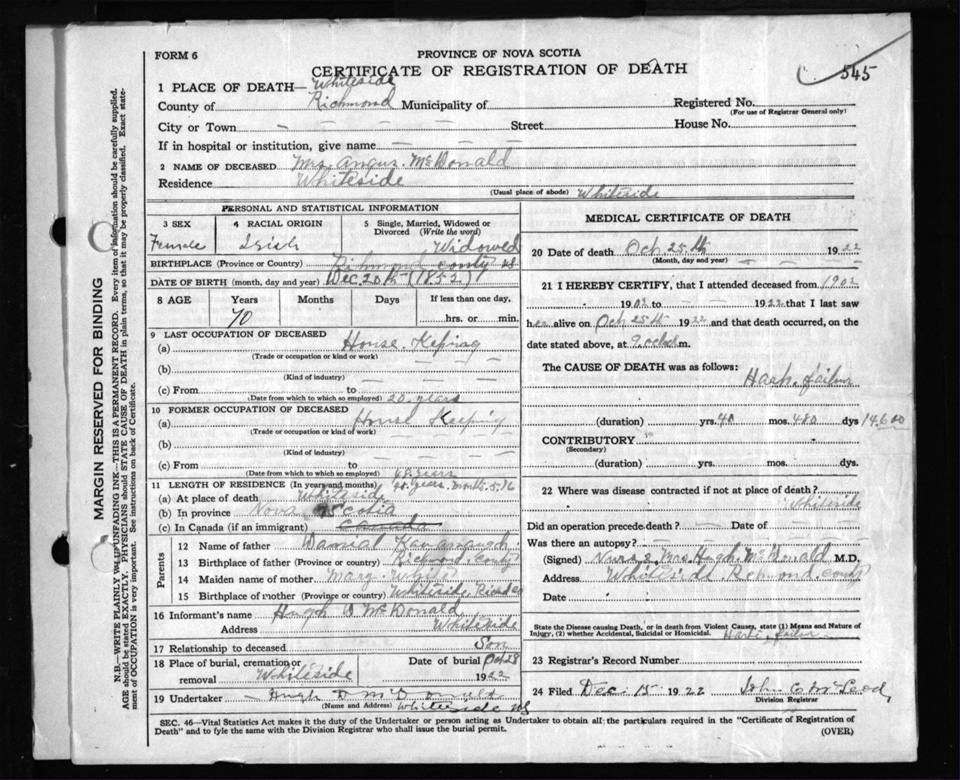 FORM 6
PROVINCE OF NOVA SCOTIA
CERTIFICATE OF REGISTRATION OF DEATH
545
1 PLACE OF DEATH— Whiteside
County of Richmond Municipality of
Registered No.
(For use of Registrar General only)
City or Town — Street House No.
If in hospital or institution, give name
2 NAME OF DECEASED Mrs. Angus. McDonald
Residence Whiteside
(Usual place of abode) Whiteside
PERSONAL AND STATISTICAL INFORMATION
3 SEX 4 RACIAL ORIGIN 5 Single, Married, Widowed or Divorced (Write the word)
Female Irish Widowed
BIRTHPLACE (Province or Country) Richmond County NS
DATE OF BIRTH (month, day and year) Dec. 20th (1852)
8 AGE Years Months Days If less than one day,
70 hrs. or min.
9 LAST OCCUPATION OF DECEASED
(a) House. Keping
(Trade or occupation or kind of work)
(b)
(Kind of industry)
(c) From to
(Date from which to which so employed) 20 years
10 FORMER OCCUPATION OF DECEASED
(a) House Keeping
(Trade or occupation or kind of work)
(b)
(Kind of industry)
(c) From to
(Date from which to which so employed)
11 LENGTH OF RESIDENCE (In years and months)
(a) At place of death Whiteside
(b) In province Nova Scotia
(c) In Canada (if an immigrant) Canada
Parents
12 Name of father Kavanaugh
13 Birthplace of father (Province or country) Richmond. County
14 Maiden name of mother Mary.
15 Birthplace of mother (Province or country) Whiteside,
16 Informant's name Hugh D McDonald
Address Whiteside
17 Relationship to deceased Son
18 Place of burial, cremation or removal Whiteside
Date of burial Oct 28 1922
19 Undertaker Hugh D McDonald
(Name and Address) Whiteside NS
MEDICAL CERTIFICATE OF DEATH
20 Date of death Oct. 25th 1922
(Month, day and year)
21 I HEREBY CERTIFY, that I attended deceased from 1902
1902 to 1922 that I last saw
her alive on Oct 25th 1922 and that death occurred, on the
date stated above, at 9 m.
The CAUSE OF DEATH was as follows:
(duration) yrs. 40 mos. 480 dys 14,600
CONTRIBUTORY
(Secondary)
(duration) yrs. mos. dys.
22 Where was disease contracted if not at place of death?
Whiteside
Did an operation precede death? — Date of —
Was there an autopsy?
(Signed) Nurse, Mrs. Hugh McDonald M.D.
Address Whiteside Richmond. County
Date
State the Disease causing Death, or in Death from Violent Causes, state (1) Means and Nature of
Injury, (2) whether Accidental, Suicidal or Homicidal.
23 Registrar's Record Number
24 Filed Dec. 15 1922 John McLeod,
Division Registrar
SEC. 46—Vital Statistics Act makes it the duty of the Undertaker or person acting as Undertaker to obtain all the particulars required in the "Certificate of Registration of
Death" and to fyle the same with the Division Registrar who shall issue the burial permit.
(OVER)
MARGIN RESERVED FOR BINDING
N.B.—WRITE PLAINLY WITH UNFADING INK—THIS IS A PERMANENT RECORD. Every item of information should be carefully supplied.
AGE should be stated EXACTLY. PHYSICIANS should STATE CAUSE OF DEATH in plain terms, so that it may be properly classified. Exact state-
ment of OCCUPATION is very important. See instructions on back of Certificate.